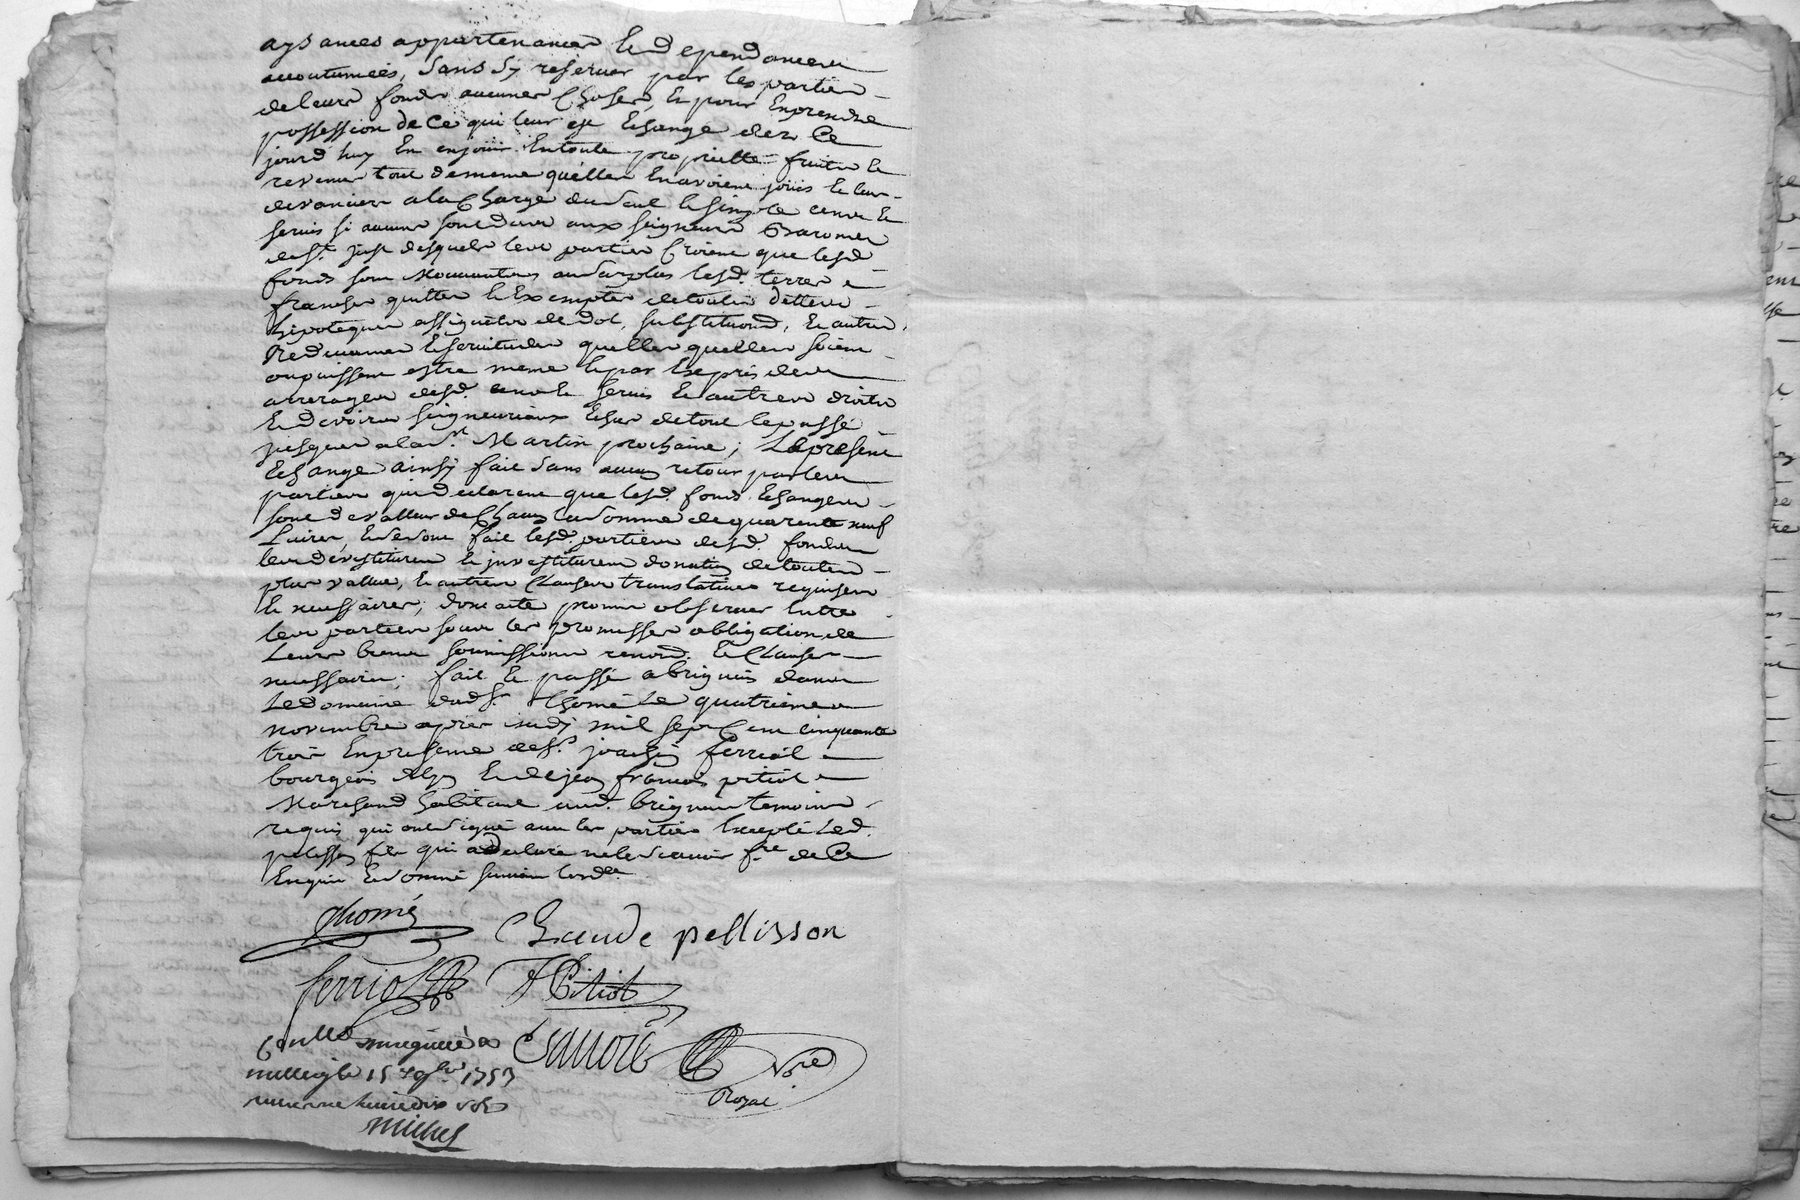 aysances appartenances Et dependances
accoutumées, sans sy reserver par les parties
de leurs fonds aucunes Choses, Et pour Enprendre
possession de Ce qui leur est Echangé dez Ce
jourd'huy En enjouir Entoute proprietté fruits Et
revenus tout demême qu'elles Enavoient jouis Et leurs
devanciers alaCharge du seul Et simple cens Et
servis si aucuns sont deus aux seigneurs Barons
de St. just desquels lesd parties Croient que lesd
fonds sont Mouvants, au surplus lesd. terres
franches quittes Et Exemptes de toutes dettes
hipoteques assignées de dot, substituond, Et autres
Redevances Et servitudes quelles quelles soient
oupuissent estre meme Et par Exprès des
arrerages desd. cens Et servis Et autres droits
Et devoirs seigneuriaux Echus de tout le passé
jusques a la St. Martin prochaine; Le present
Echange ainsy fait sans aucun retour par les
parties qui declarent que lesd. fonds Echangés
sont de valleur de Chacun la somme de quarente neuf
Livres, Et se sont fait lesd. parties desd. fonds
les devestitures Et investitures donation de toutes
plus vallues, Et autres Clauses translatives requises
Et necessaires; dont acte promis observer Entre
les parties sous les promesses obligation de
Leurs biens soumissions renond. Et Clauses
necessaires; fait Et passé a brignais dans
Le domaine dud Sr. Thomé Le quatrieme
novembre apres midy mil sept Cent Cinquante
trois En presence de Sr. joachim ferriol
bourgeois Et de jean francois pitiot
Marchand habitant aud. brignais temoins
requis qui ont signé avec les parties Excepté Led.
pelisson fils qui a declaré ne le scavoir fre. de Ce
Enquis Et sommé suivant Lordce.
Thomé
Claude pellisson
ferriol
JF Pitiot
Con[tro]llé
15 9bre 1753
Michel
Nore
Royal